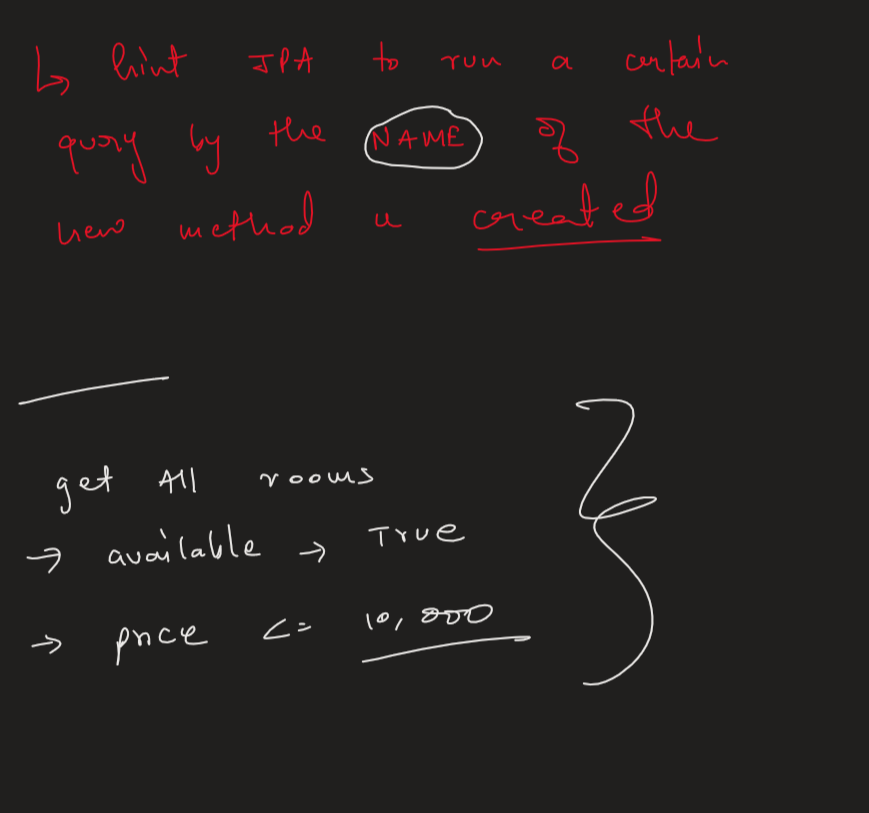 ↳ hint JPA to run a certain
query by the NAME of the
new method u created
get All rooms
→ available → True
→ price <= 10,000